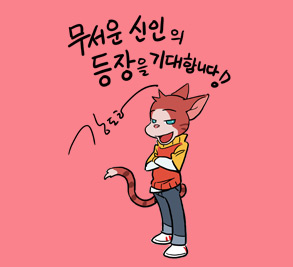 무서운 신인의
등장을 기대합니당!